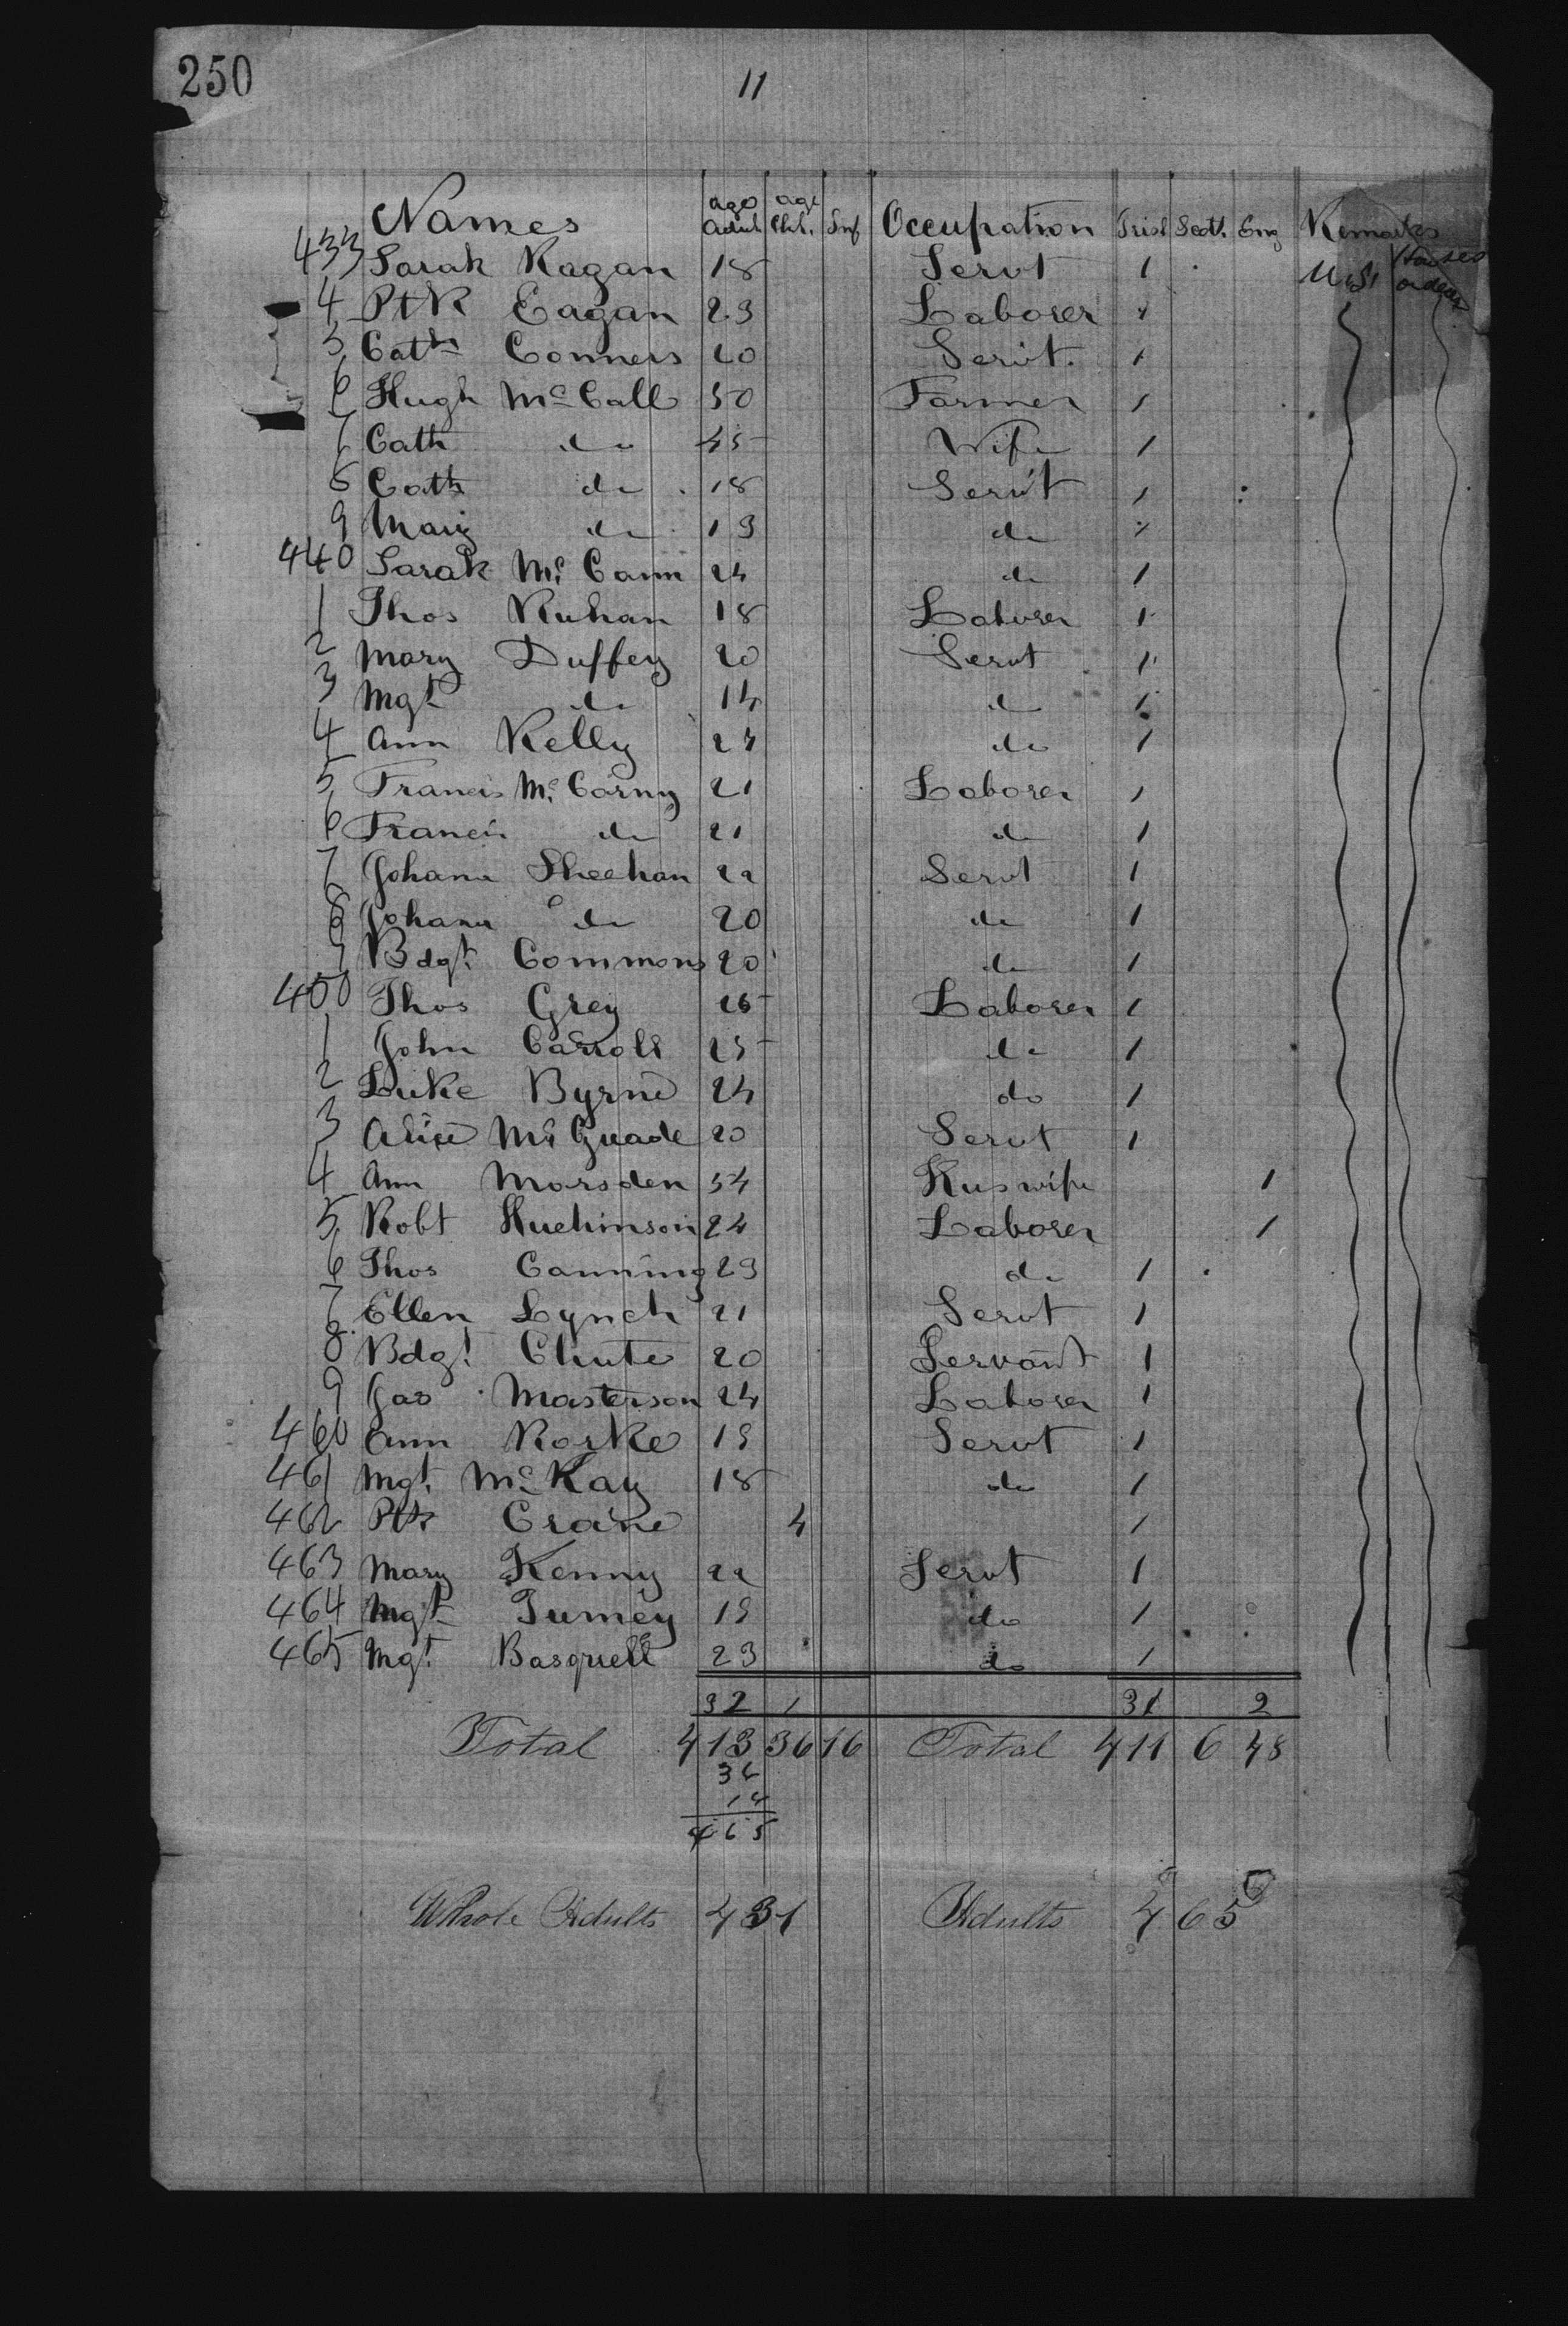 250
11
Names age Adult age Chl. Inf Occupation Irish Scott. Eng Remarks
433 Sarah Kagan 18 Servt 1 U.S.
4 Ptk Eagan 23 Laborer 1
5 Cath Conners 20 Servt. 1
6 Hugh McCall 50 Farmer 1
7 Cath do 45 Wife 1
8 Cath do 18 Servt 1
9 Mary do 19 do 1
440 Sarah Mc Cann 24 do 1
1 Thos Ruhan 18 Laborer 1
2 Mary Duffey 20 Servt 1
3 Mgt do 14 do 1
4 Ann Kelly 24 do 1
5 Francis Mc Carny 21 Laborer 1
6 Francis do 21 do 1
7 Johana Sheehan 22 Servt 1
8 Johana do 20 do 1
9 Bdgt. Commons 20 do 1
450 Thos Grey 26 Laborer 1
1 John Carroll 25 do 1
2 Luke Byrne 24 do 1
3 Alice Mc Guade 20 Servt 1
4 Ann Marsden 54 Huswife 1
5 Robt Huchinson 24 Laborer 1
6 Thos Canning 23 do 1
7 Ellen Lynch 21 Servt 1
8 Bdgt. Chute 20 Servant 1
9 Jas Masterson 24 Laborer 1
460 Ann Rorke 19 Servt 1
461 Mgt. McKay 18 do 1
462 Ptk Crane 4 1
463 Mary Kenny 22 Servt 1
464 Mgt Tumey 19 do 1
465 Mgt. Basquell 23 do 1
32 1 31 2
Total 413 36 16 Total 411 6 48
36
16
465
Whole Adults 431 Adults 465